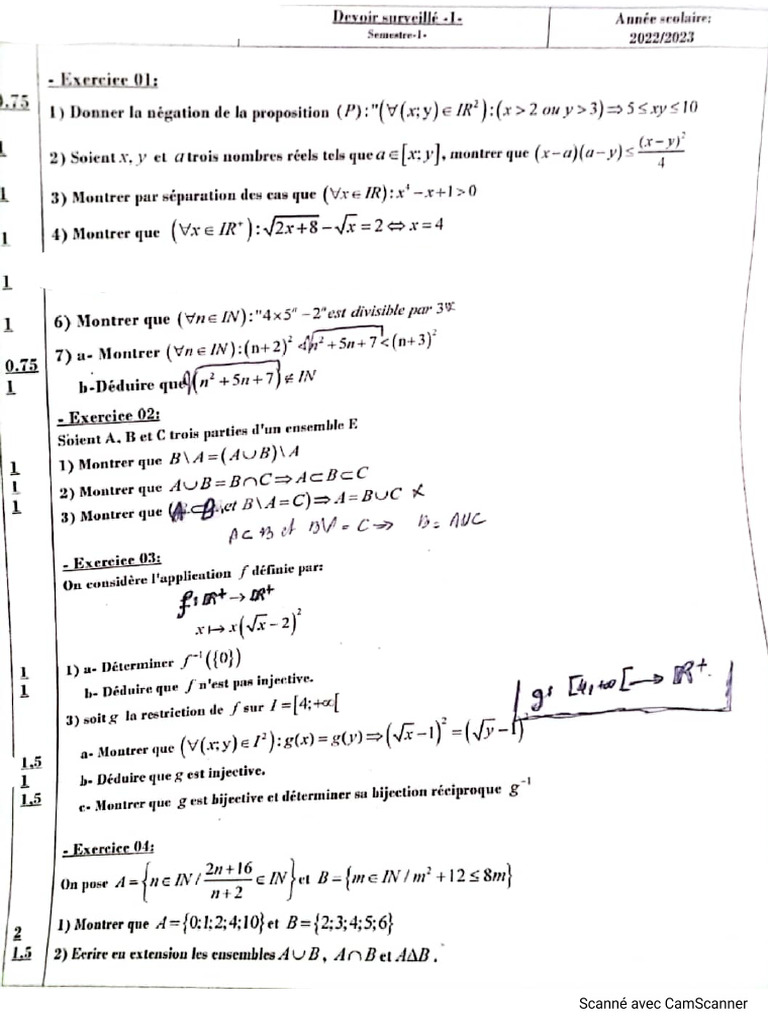 Devoir surveillé -1-
Semestre-1-
Année scolaire:
2022/2023
- Exercice 01:
0.75 1) Donner la négation de la proposition (P):"(∀(x;y)∈IR²):(x>2 ou y>3)⇒5≤xy≤10
1 2) Soient x, y et a trois nombres réels tels que a∈[x;y], montrer que (x−a)(a−y)≤(x−y)²/4
1 3) Montrer par séparation des cas que (∀x∈IR):x⁴−x+1>0
1 4) Montrer que (∀x∈IR⁺):√(2x+8)−√x=2⇔x=4
1
1 6) Montrer que (∀n∈IN):"4×5ⁿ−2ⁿ est divisible par 3"
0.75 7) a- Montrer (∀n∈IN):(n+2)²<√(n²+5n+7)<(n+3)²
1 b-Déduire que √(n²+5n+7)∉IN
- Exercice 02:
Soient A, B et C trois parties d'un ensemble E
1 1) Montrer que B\A=(A∪B)\A
1 2) Montrer que A∪B=B∩C⇒A⊂B⊂C
1 3) Montrer que (A⊂B et B\A=C)⇒A=B∪C
A⊂B et B\A=C ⇒ B=A∪C
- Exercice 03:
On considère l'application f définie par:
f: IR⁺→IR⁺
x↦x(√x−2)²
1 1) a- Déterminer f⁻¹({0})
1 b- Déduire que f n'est pas injective.
3) soit g la restriction de f sur I=[4;+∞[
g: [4,+∞[→IR⁺
1.5 a- Montrer que (∀(x;y)∈I²):g(x)=g(y)⇒(√x−1)²=(√y−1)²
1 b- Déduire que g est injective.
1.5 c- Montrer que g est bijective et déterminer sa bijection réciproque g⁻¹
- Exercice 04:
On pose A={n∈IN/(2n+16)/(n+2)∈IN} et B={m∈IN/m²+12≤8m}
2 1) Montrer que A={0;1;2;4;10} et B={2;3;4;5;6}
1.5 2) Ecrire en extension les ensembles A∪B, A∩B et AΔB.
Scanné avec CamScanner